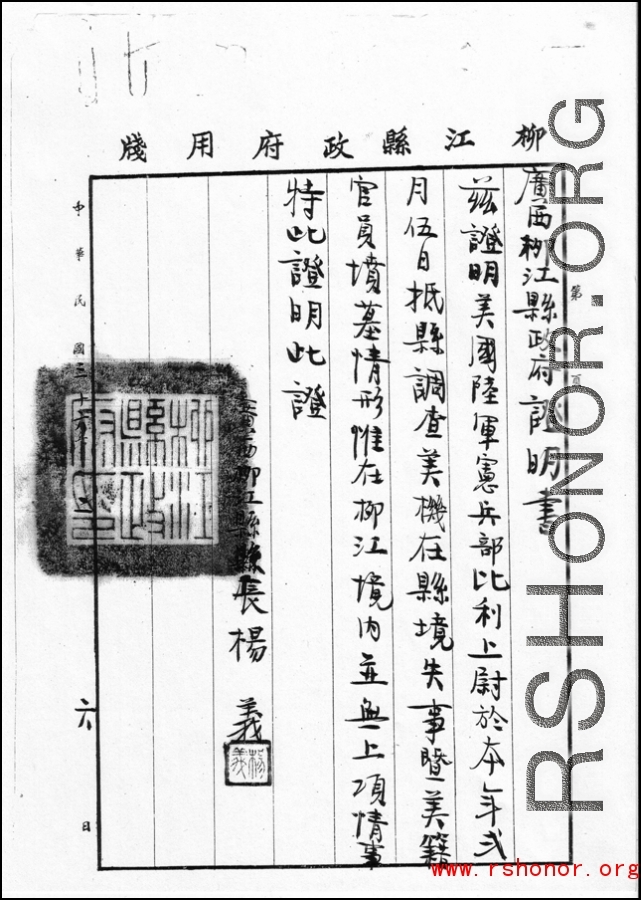 柳江縣政府用牋
第 頁
廣西柳江縣政府證明書
茲證明美國陸軍憲兵部比利上尉於本年弍
月伍日抵縣調查美機在縣境失事暨美籍
官員墳墓情形惟在柳江境內並無上項情事
特此證明此證
廣西柳江縣縣長楊義
楊義
柳江縣政府印
中華民國三十 年 六日
RSHONOR.ORG
www.rshonor.org